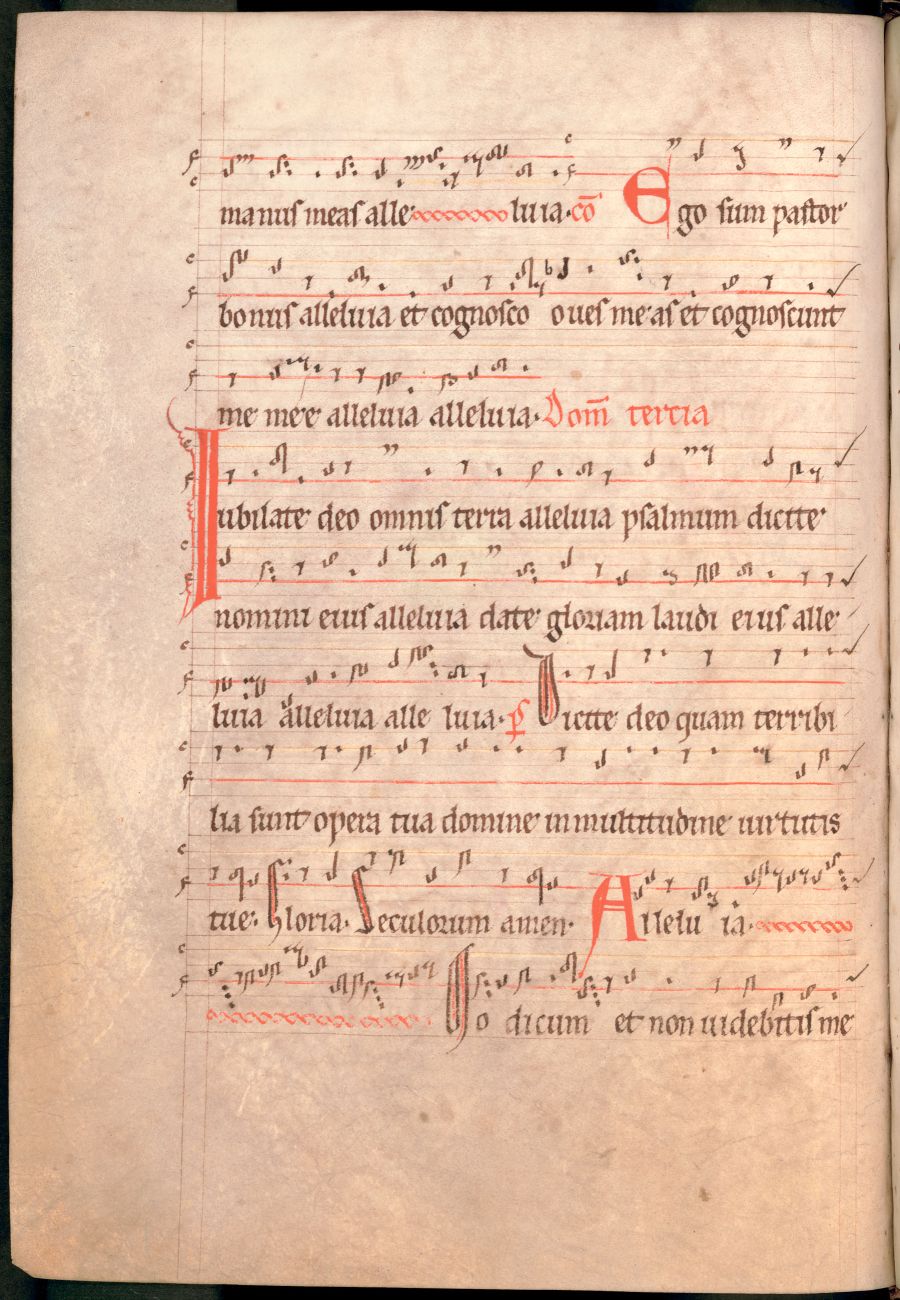 manus meas alle luia. cō Ego sum pastor
bonus alleluia et cognosco oues meas et cognoscunt
me mee alleluia alleluia. Dom̄ tercia
Iubilate deo omnis terra alleluia psalmum dicite
nomini eius alleluia date gloriam laudi eius alle
luia alleluia alle luia. p̄s Dicite deo quam terribi
lia sunt opera tua domine in multitudine uirtutis
tue. Gloria. Seculorum amen. Allelu ia.
o dicum et non uidebitis me